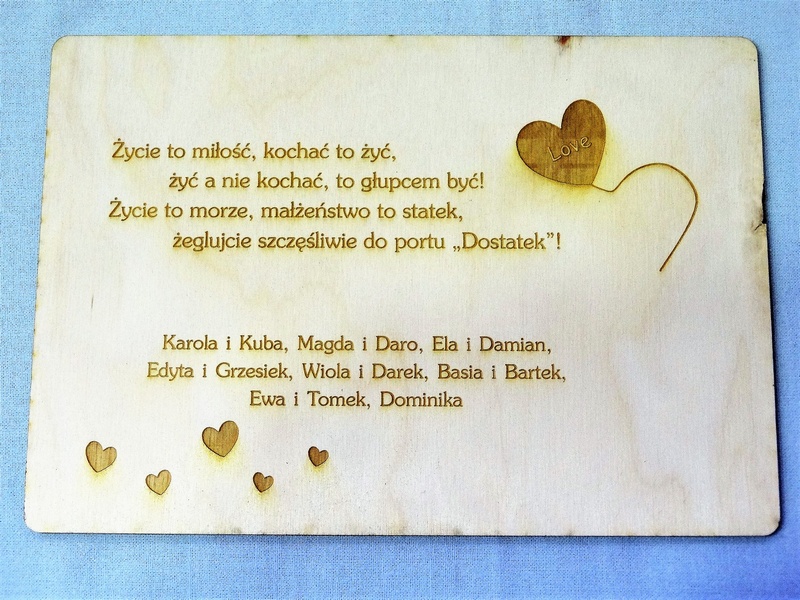 Love
Życie to miłość, kochać to żyć,
żyć a nie kochać, to głupcem być!
Życie to morze, małżeństwo to statek,
żeglujcie szczęśliwie do portu „Dostatek”!
Karola i Kuba, Magda i Daro, Ela i Damian,
Edyta i Grzesiek, Wiola i Darek, Basia i Bartek,
Ewa i Tomek, Dominika